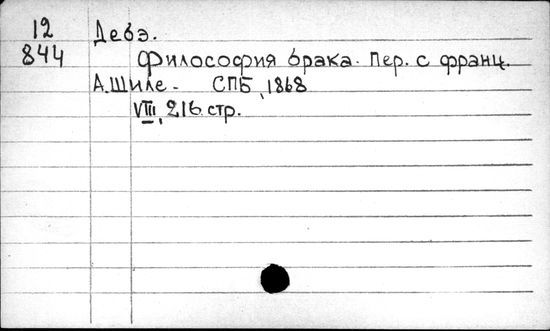 12 Дебэ.
844 Философия брака. Пер. с франц.
А. Шиле - СПБ, 1868
VIII, 216 стр.